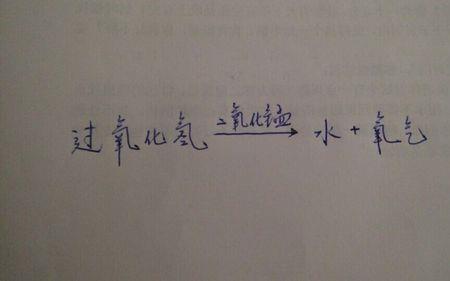 过氧化氢 二氧化锰→ 水 + 氧气